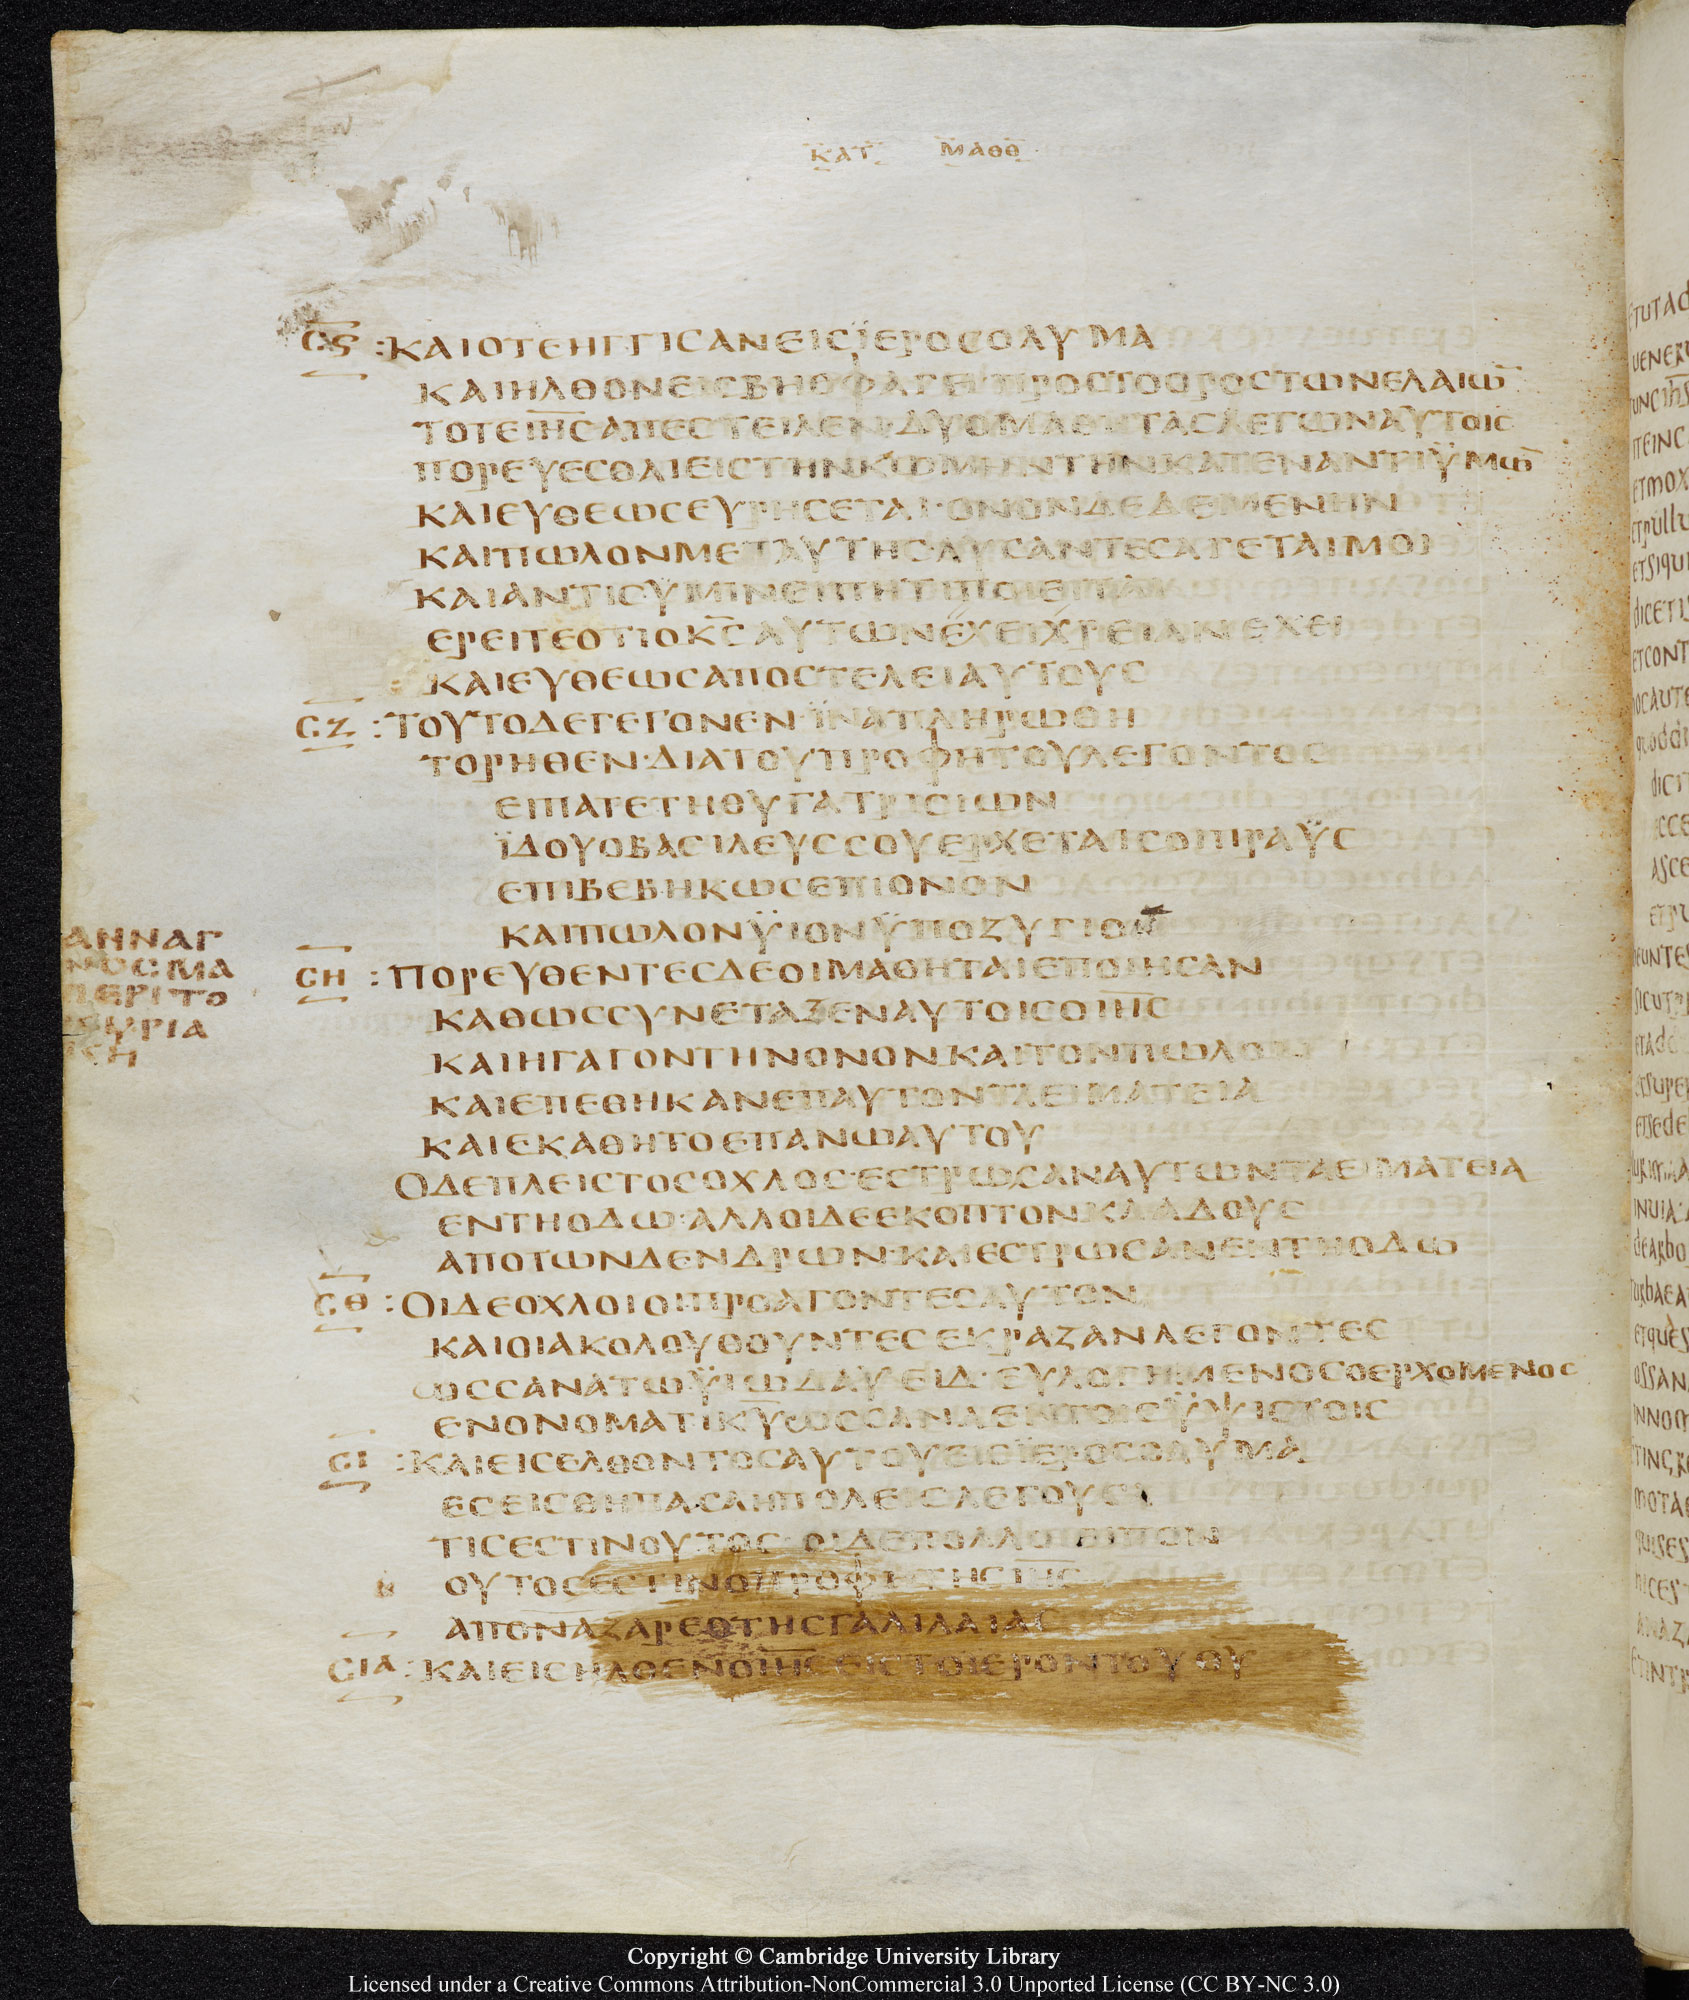 ΚΑΤ ΜΑΘΘ
Ϲϛ : ΚΑΙΟΤΕΗΓΓΙϹΑΝΕΙϹΪΕΡΟϹΟΛΥΜΑ
ΚΑΙΗΛΘΟΝΕΙϹΒΗΘΦΑΓΗ ΠΡΟϹΤΟΟΡΟϹΤΩΝΕΛΑΙΩ̅
ΤΟΤΕΙΗ̅Ϲ̅ΑΠΕϹΤΕΙΛΕΝ·ΔΥΟΜΑΘΗΤΑϹΛΕΓΩΝΑΥΤΟΙϹ
ΠΟΡΕΥΕϹΘΑΙΕΙϹΤΗΝΚΩΜΗΝΤΗΝΚΑΤΕΝΑΝΤΙΫΜΩ̅
ΚΑΙΕΥΘΕΩϹΕΥΡΗϹΕΤΑΙ·ΟΝΟΝΔΕΔΕΜΕΝΗΝ
ΚΑΙΠΩΛΟΝΜΕΤΑΥΤΗϹ·ΛΥϹΑΝΤΕϹΑΓΕΤΑΙΜΟΙ
ΚΑΙΑΝΤΙϹΫΜΙΝΕΙΠΗΤΙΠΟΙΕΙΤΑΙ
ΕΡΕΙΤΕΟΤΙΟΚ̅Ϲ̅ΑΥΤΩΝΕΧΕΙΧΡΕΙΑΝΕΧΕΙ
ΚΑΙΕΥΘΕΩϹΑΠΟϹΤΕΛΕΙΑΥΤΟΥϹ
ϹΖ : ΤΟΥΤΟΔΕΓΕΓΟΝΕΝ·ΪΝΑΠΛΗΡΩΘΗ
ΤΟΡΗΘΕΝ·ΔΙΑΤΟΥΠΡΟΦΗΤΟΥΛΕΓΟΝΤΟϹ
ΕΙΠΑΤΕΤΗΘΥΓΑΤΡΙϹΙΩΝ
ΪΔΟΥΟΒΑϹΙΛΕΥϹϹΟΥΕΡΧΕΤΑΙϹΟΙΠΡΑΫϹ
ΕΠΙΒΕΒΗΚΩϹΕΠΙΟΝΟΝ
ΚΑΙΠΩΛΟΝΫΙΟΝΫΠΟΖΥΓΙΟΝ
ΑΗΝΑΓ
ΝΟϹΜΑ
ΠΕΡΙΤΟ
ΚΥΡΙΑ
ΚΗ
ϹΗ : ΠΟΡΕΥΘΕΝΤΕϹΔΕΟΙΜΑΘΗΤΑΙΕΠΟΙΗϹΑΝ
ΚΑΘΩϹϹΥΝΕΤΑΞΕΝΑΥΤΟΙϹΟΙΗ̅Ϲ̅
ΚΑΙΗΓΑΓΟΝΤΗΝΟΝΟΝ·ΚΑΙΤΟΝΠΩΛΟΝ
ΚΑΙΕΠΕΘΗΚΑΝΕΠΑΥΤΟΝΤΑΕΙΜΑΤΕΙΑ
ΚΑΙΕΚΑΘΗΤΟΕΠΑΝΩΑΥΤΟΥ
ΟΔΕΠΛΕΙϹΤΟϹΟΧΛΟϹ·ΕϹΤΡΩϹΑΝΑΥΤΩΝΤΑΕΙΜΑΤΕΙΑ
ΕΝΤΗΟΔΩ·ΑΛΛΟΙΔΕΕΚΟΠΤΟΝΚΛΑΔΟΥϹ
ΑΠΟΤΩΝΔΕΝΔΡΩΝ·ΚΑΙΕϹΤΡΩϹΑΝΕΝΤΗΟΔΩ
ϹΘ : ΟΙΔΕΟΧΛΟΙΟΙΠΡΟΑΓΟΝΤΕϹΑΥΤΟΝ
ΚΑΙΟΙΑΚΟΛΟΥΘΟΥΝΤΕϹΕΚΡΑΖΑΝΛΕΓΟΝΤΕϹ
ΩϹϹΑΝΑΤΩΫΙΩΔΑΥΕΙΔ·ΕΥΛΟΓΗΜΕΝΟϹΟΕΡΧΟΜΕΝΟϹ
ΕΝΟΝΟΜΑΤΙΚ̅Υ̅ΩϹϹΑΝΑΕΝΤΟΙϹΫΨΙϹΤΟΙϹ
ϹΙ : ΚΑΙΕΙϹΕΛΘΟΝΤΟϹΑΥΤΟΥΕΙϹΪΕΡΟϹΟΛΥΜΑ
ΕϹΕΙϹΘΗΠΑϹΑΗΠΟΛΕΙϹΛΕΓΟΥϹΑ
ΤΙϹΕϹΤΙΝΟΥΤΟϹ·ΟΙΔΕΠΟΛΛΟΙΕΙΠΟΝ
ΟΥΤΟϹΕϹΤΙΝΟΠΡΟΦΗΤΗϹΙΗ̅Ϲ̅
ΑΠΟΝΑΖΑΡΕΘΤΗϹΓΑΛΙΛΑΙΑϹ
ϹΙΑ : ΚΑΙΕΙϹΗΛΘΕΝΟΙΗ̅Ϲ̅ΕΙϹΤΟΙΕΡΟΝΤΟΥΘΥ
Copyright © Cambridge University Library
Licensed under a Creative Commons Attribution-NonCommercial 3.0 Unported License (CC BY-NC 3.0)